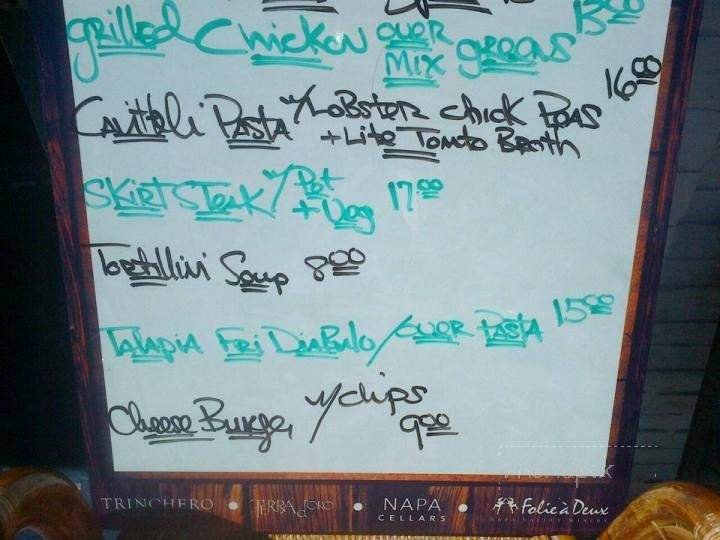 GRILLED Chicken OVER MIX greens 13.00
CAVITTELi PASTA w/ LOBSTER CHICK PEAS 16.00
+ Lite TOMTO BROTH
SKIRT STEAK w/ Pot + Veg 17.00
TORTILLINI Soup 8.00
TALAPIA FRI DIABULO / OVER PASTA 15.00
CHEESE BURGER w/ chips 9.00
TRINCHERO • TERRA d'ORO • NAPA CELLARS • Folie à Deux
NAPA VALLEY WINERY